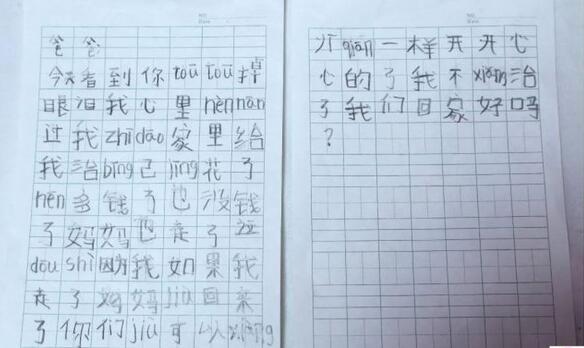 爸爸:
今天看到你tōu tōu掉
眼泪我心里hěn nán
过我zhī dào家里给
我治bìng已jīng花了
hěn多钱了也没钱
了妈妈也走了这
dōu shì因为我如果我
走了妈妈jiù回来
了你们jiù可以xiàng
以qián一样开开心
心的了我不xiǎng治
了我们回家好吗
?